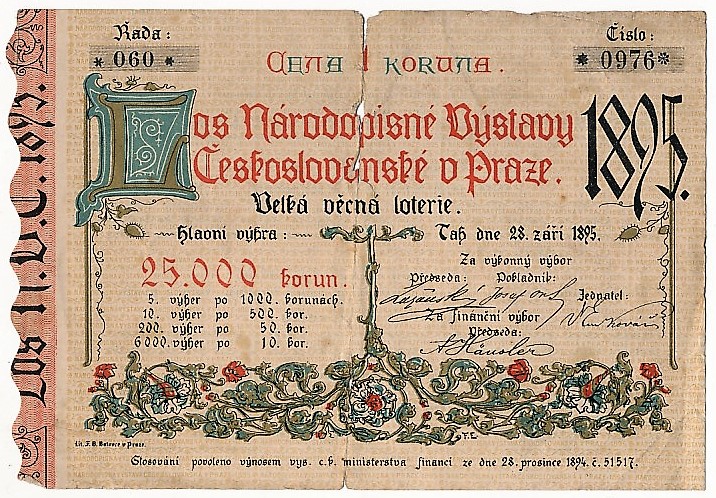 Řada:
* 060 *
Číslo:
* 0976 *
CENA 1 KORUNA.
Los Národopisné Výstavy
Českoslovanské v Praze.
1895.
Velká věcná loterie.
Hlavní výhra:
25.000 korun.
5. výher po 1000. korunách.
10. výher po 500. kor.
200. výher po 50. kor.
6000. výher po 10. kor.
Tah dne 28. září 1895.
Za výkonný výbor
Předseda: Pokladník:
Jednatel:
Za finanční výbor
Předseda:
Los N.V.Č. 1895.
F.E.
Lit. F. B. Batovce v Praze.
Slosování povoleno výnosem vys. c.k. ministerstva financí ze dne 28. prosince 1894. č. 51517.